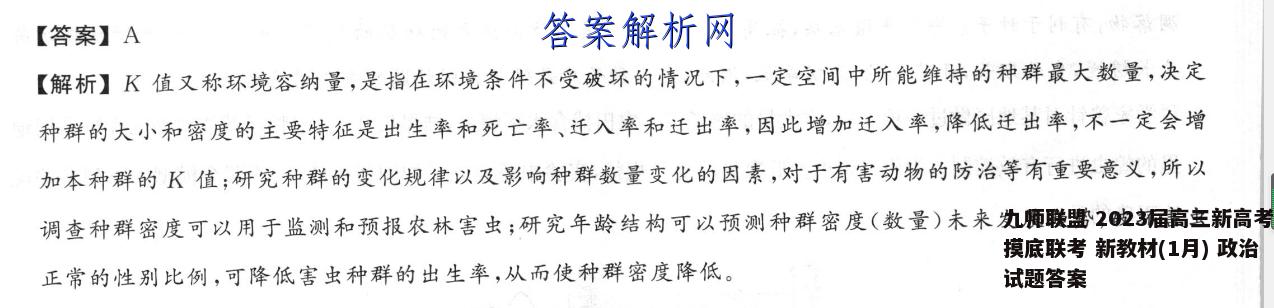 答案解析网
【答案】A
【解析】K 值又称环境容纳量,是指在环境条件不受破坏的情况下,一定空间中所能维持的种群最大数量,决定
种群的大小和密度的主要特征是出生率和死亡率、迁入率和迁出率,因此增加迁入率,降低迁出率,不一定会增
加本种群的 K 值;研究种群的变化规律以及影响种群数量变化的因素,对于有害动物的防治等有重要意义,所以
调查种群密度可以用于监测和预报农林害虫;研究年龄结构可以预测种群密度(数量)未来发
正常的性别比例,可降低害虫种群的出生率,从而使种群密度降低。
九师联盟 2023届高三新高考
摸底联考 新教材(1月) 政治
试题答案